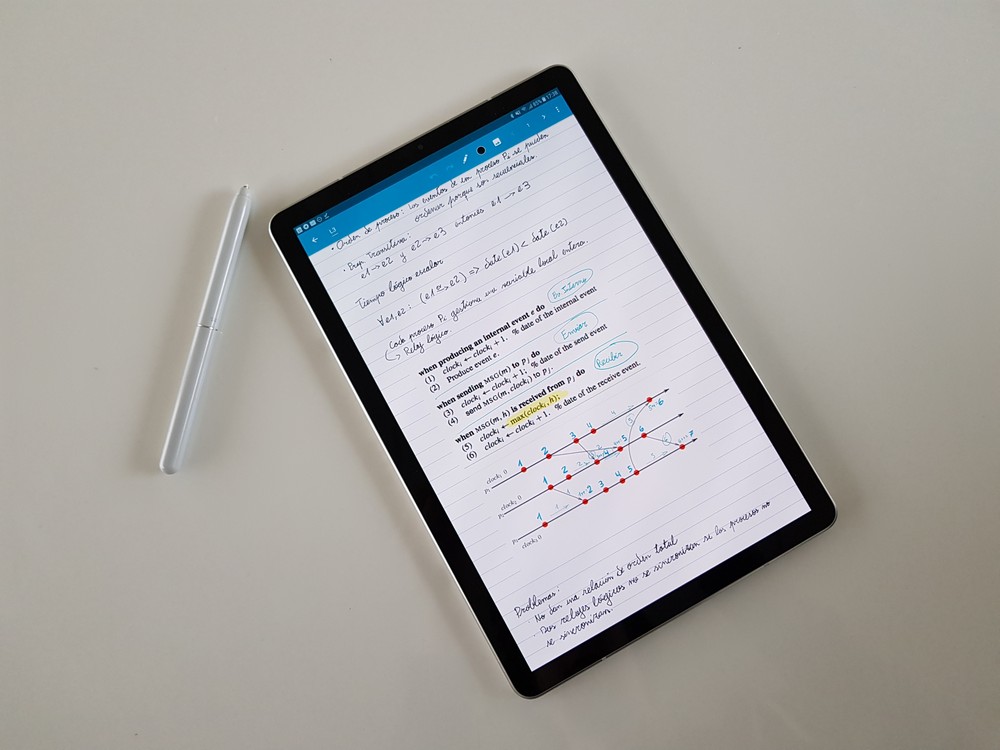 85% 17:38
L3
• Orden de proceso: Los eventos de un proceso Pi se pueden
ordenar porque son secuenciales.
• Transitiva:
e1→e2 y e2→e3 entonces e1→e3
Tiempo lógico escalar
∀e1,e2: (e1→e2) => date(e1) < date(e2)
Cada proceso Pi gestiona una variable local entera.
Reloj lógico.
when producing an internal event e do
Ev. Interno
(1) clocki ← clocki + 1. % date of the internal event
(2) Produce event e.
when sending MSG(m) to Pj do
Enviar
(3) clocki ← clocki + 1; % date of the send event
(4) send MSG(m, clocki) to Pj.
when MSG(m, h) is received from Pj do
Recibir
(5) clocki ← max(clocki, h);
(6) clocki ← clocki + 1. % date of the receive event.
1 2 3 4 6
1 2 4 5 6
1 2 3 4 5 7
Problemas:
· No dan una relación de orden total
· Dos relojes lógicos no se sincronizan si los procesos no
se sincronizan.